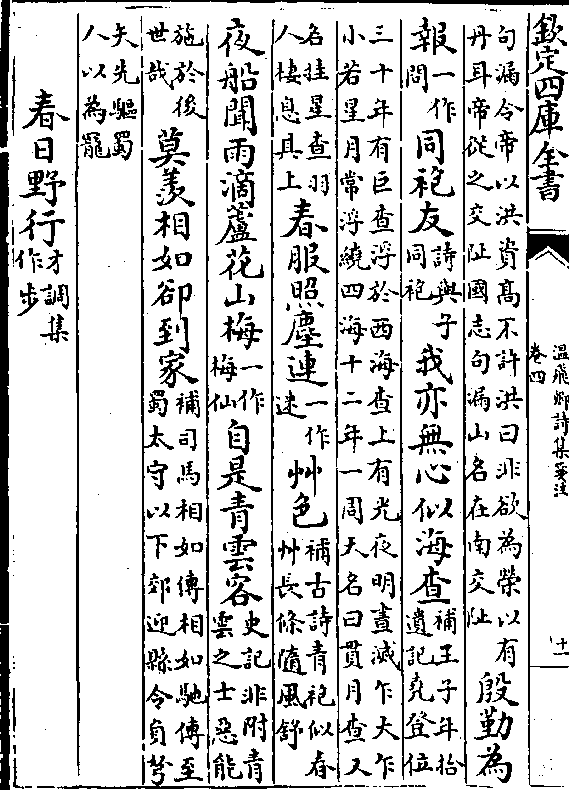 欽定四庫全書
溫飛卿詩集箋注
卷四
十一
句漏令帝以洪資高不許洪曰非欲為榮以有
丹耳帝從之交阯國志句漏山名在南交阯
殷勤為
報一作問同袍友詩與子同袍我亦無心似海查補王子年拾遺記堯登位
三十年有巨查浮於西海查上有光夜明晝滅乍大乍
小若星月常浮繞四海十二年一周天名曰貫月查又
名挂星查羽人棲息其上春服照塵連一作迷艸色補古詩青袍似春艸長條隨風舒
夜船聞雨滴蘆花山梅一作梅仙自是青雲客史記非附青雲之士惡能
施於後世哉莫羨相如卻到家補司馬相如傳相如馳傳至蜀太守以下郊迎縣令負弩
矢先驅蜀人以為寵
春日野行才調集作步